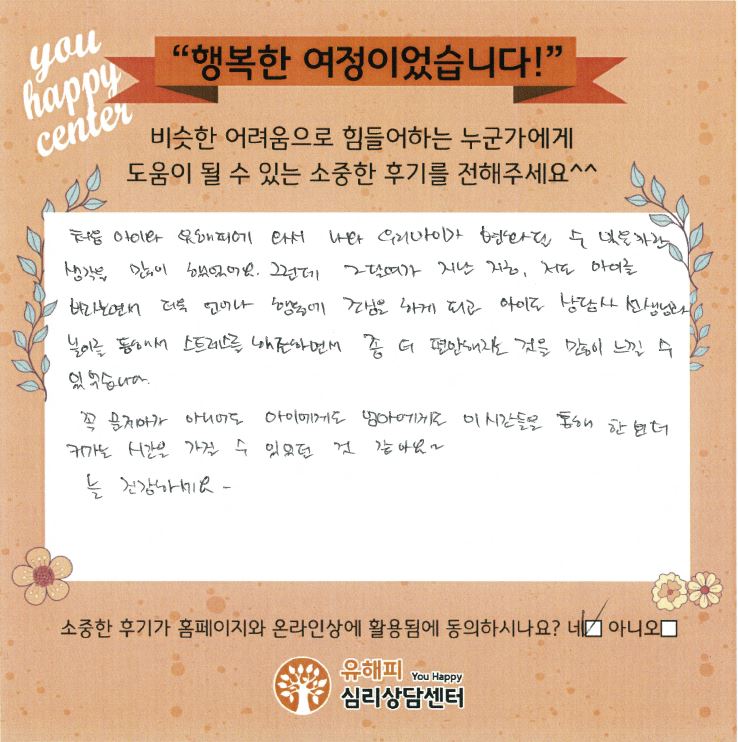 you
happy
center
“행복한 여정이었습니다!”
비슷한 어려움으로 힘들어하는 누군가에게
도움이 될 수 있는 소중한 후기를 전해주세요^^
처음 아이와 유해피에 와서 나와 우리아이가 변화될 수 있을까란
생각을 많이 했었어요. 그런데 지난 지금, 저도 아이를
바라보면서 더욱 언어나 행동에 조심을 하게 되고 아이도 상담사 선생님과
놀이를 통해서 스트레스를 해소하면서 좀 더 편안해지는 것을 많이 느낄 수
있었습니다.
꼭 문제아가 아니어도 아이에게도 엄마에게도 이 시간들을 통해 한 뼘 더
커가는 시간을 가질 수 있었던 것 같아요~
늘 건강하세요~
소중한 후기가 홈페이지와 온라인상에 활용됨에 동의하시나요? 네 아니오
유해피 You Happy
심리상담센터